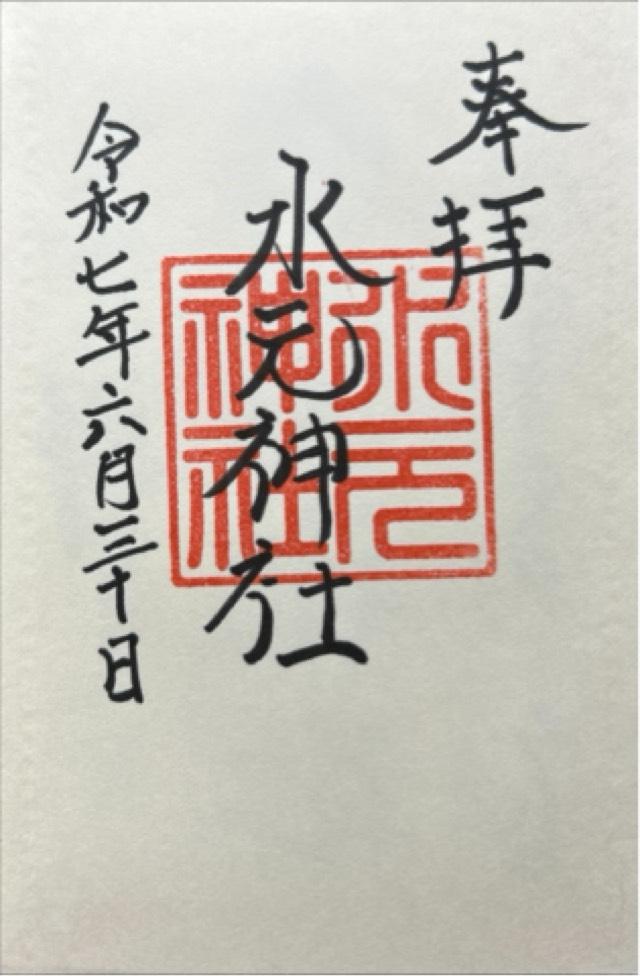 奉拝
水元神社
水元神社
令和七年六月三十日